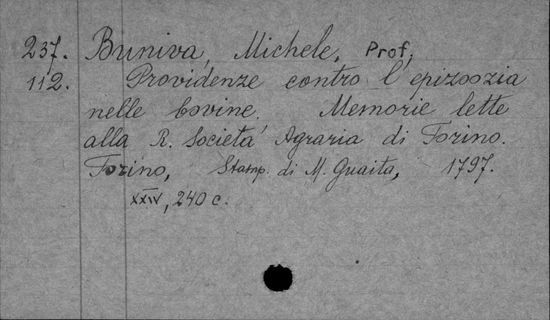 237. Buniva, Michele, Prof.
112. Providenze contro l'epizoozia
nelle bovine. Memorie lette
alla R. Società Agraria di Torino.
Torino, Stamp. di M. Guaita, 1797.
XXIV, 240 c.